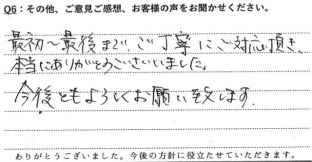 Q6：その他、ご意見ご感想、お客様の声をお聞かせください。
最初〜最後まで、ご丁寧にご対応頂き、
本当にありがとうございました。
今後ともよろしくお願い致します。
ありがとうございました。今後の方針に役立たせていただきます。